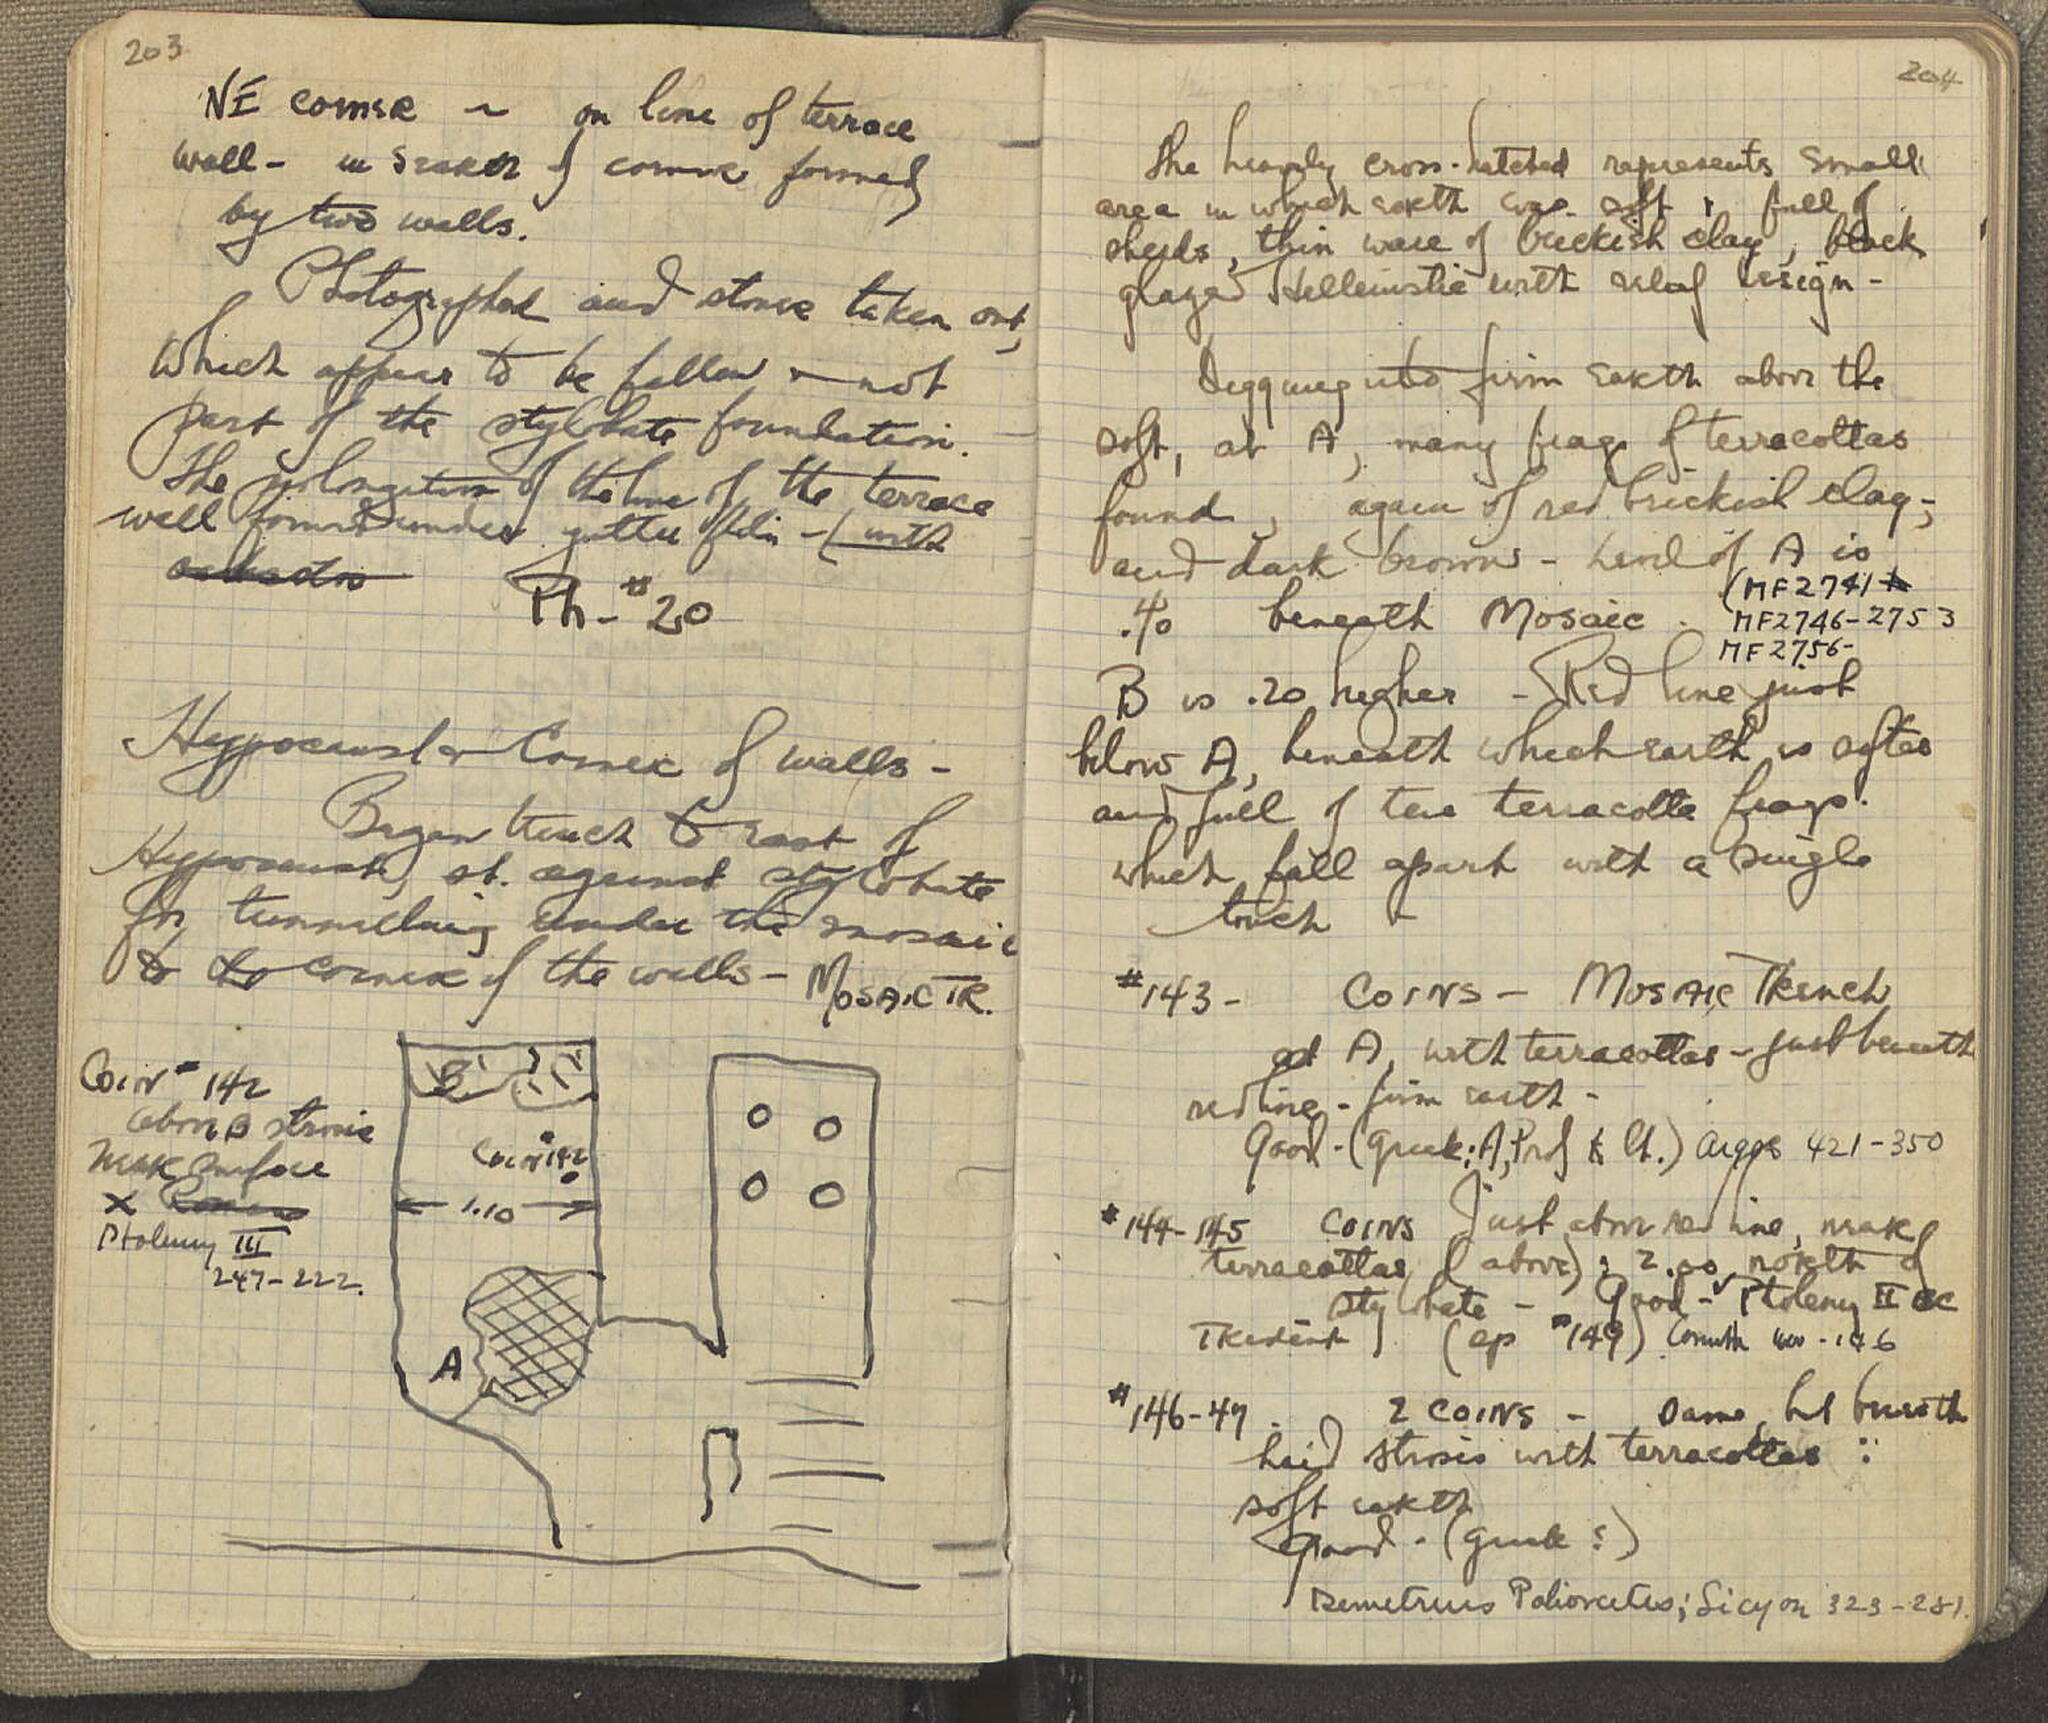 203
NE CORNER ~ on line of terrace
wall - in search of corner formed
by two walls.
Photographed and stones taken out,
which appear to be fallen & not
part of the stylobate foundation.
The prolongation of the line of the terrace
wall found under gutter (with
Ph - #20
Hypocaust Corner of walls -
Began trench to east of
Hypocaust, at. against stylobate
for tunnelling under the mosaic
to corner of the walls - MOSAIC TR.
COIN #142
above B strosis
near surface
X
Ptolemy III
247-222.
B
COIN 142
1.10
A
204
The heavily cross-hatched represents small
area in which earth was soft & full of
sherds, thin ware of brickish clay, black
glazed Hellenistic with relief design -
Digging into firm earth above the
soft, at A, many frags of terracottas
found, again of red brickish clay,
and dark brown - level of A is
.40 beneath Mosaic.
(MF2741
MF2746-2753
MF2756-
B is .20 higher - Red line just
below A, beneath which earth is softer
and full of terracotta frags.
which fall apart with a single
touch -
#143 - COINS - MOSAIC Trench
at A, with terracottas - just beneath
red line - firm earth -
Good - (Greek; A, Prof ) Argos 421-350
#144-145 COINS Just above red line, near
terracottas (above); 2.00 north of
stylobate - Good - Ptolemy II BC
Trident (cp #149) Corinth -146
#146-47. 2 COINS - Same, but beneath
hard strosis with terracottas :
soft earth
Good - (Greek?)
Demetrius Poliorcetes; Sicyon 323-251.